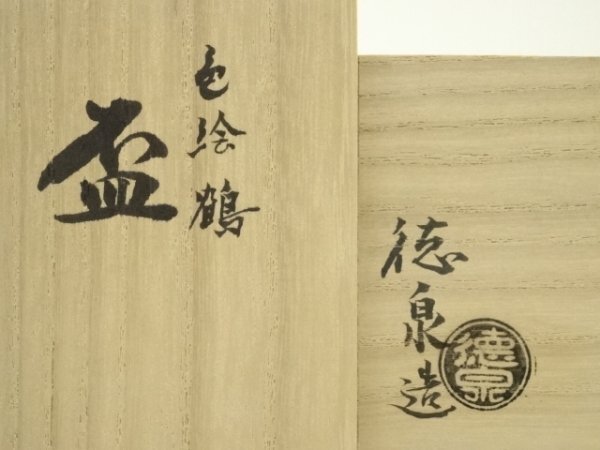 色絵鶴
盃
徳泉造
徳泉